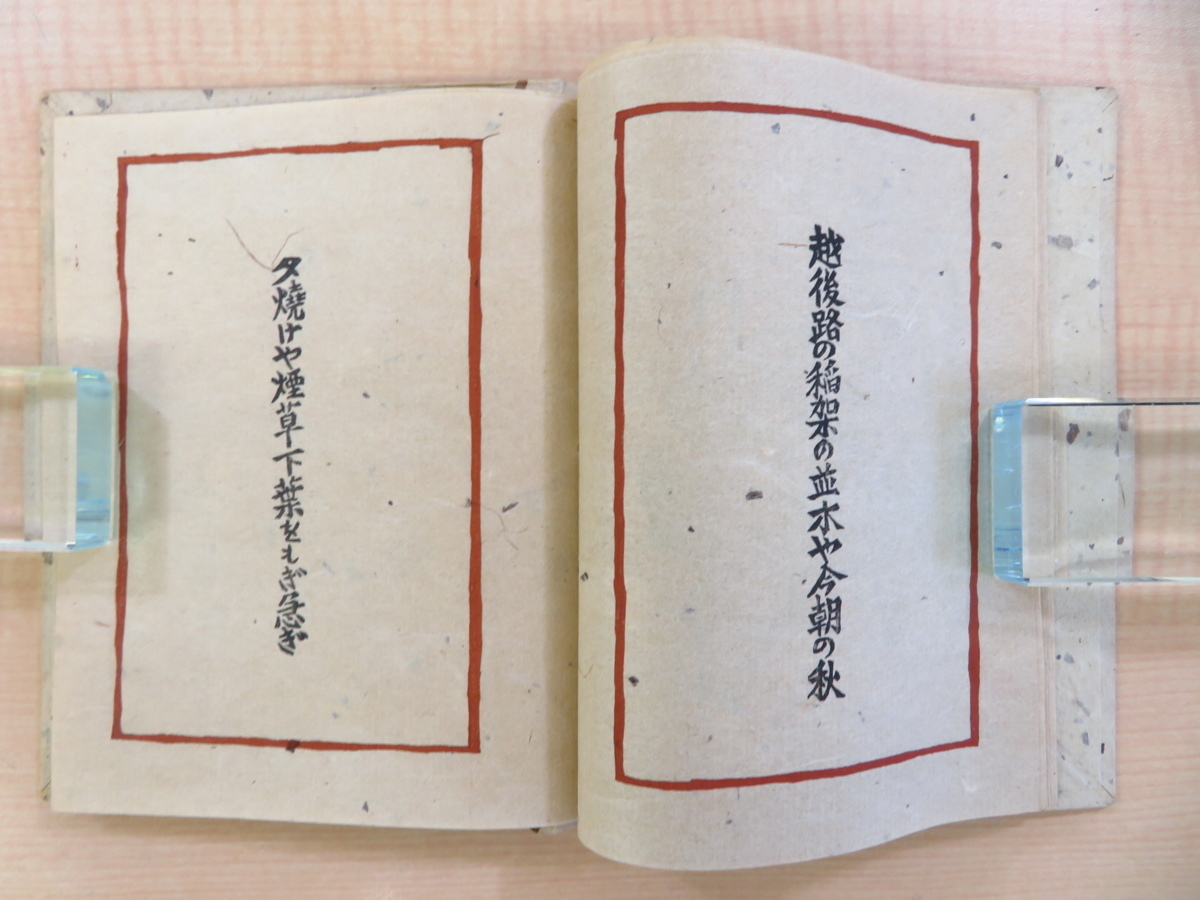 越後路の稲架の並木や今朝の秋
夕燒け や煙草下葉をもぎ急ぎ